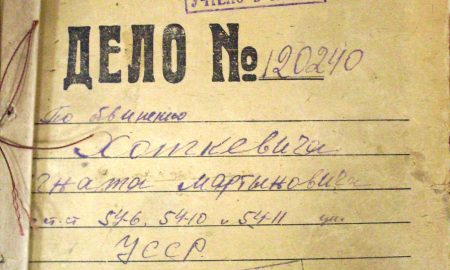 УЧТЕНО В
ДЕЛО № 120240
По обвинению
Хоткевича
Гната Мартыновича
ст.ст 54-6, 54-10 и 54-11 ук.
УССР